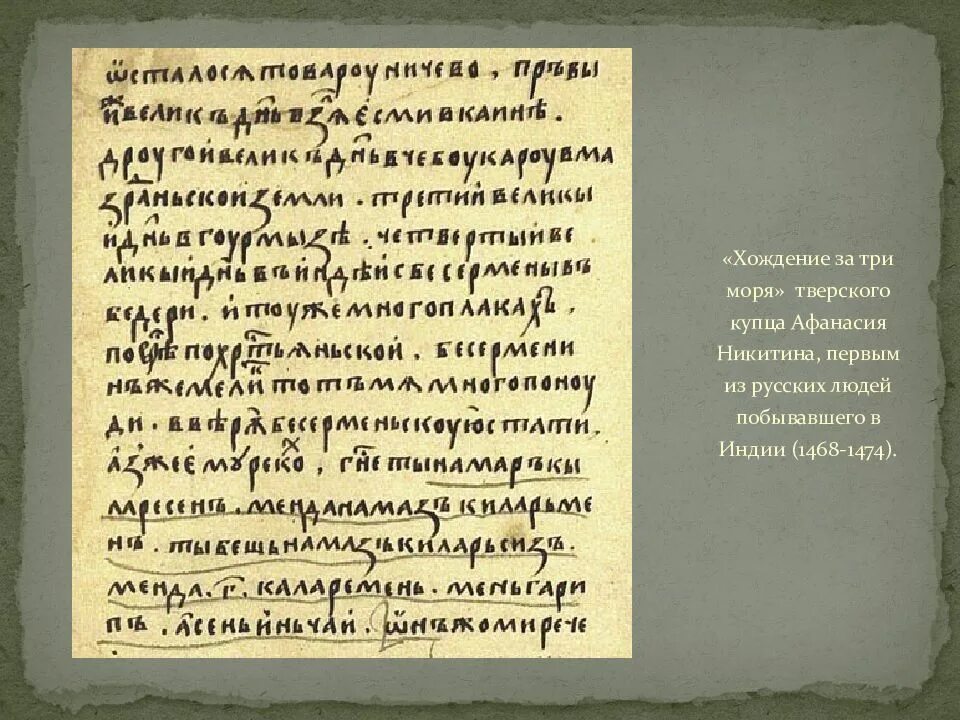 ѿсталосѧ товароу ничево , пръвы
и҆ же великъ д҃нь взѧ е́сми в каинѣ .
дроугои великъ д҃нь в чебоукароу в ма
здраньской земли . третий великы
й д҃нь в гоурмызѣ . четвертый ве
ликый д҃нь въ и҆ндѣи с бесермены въ
бедери . и҆ тоу же много плакахъ ,
по вѣре по хрⷭ҇тьꙗньской . бесермени
нъ же мелик тот мѧ много поноу
ди . в вѣрѫ бесерменьскоую стати .
аз же ему рекох , г҃не ты намаръ кы
ларесенъ . менда намазъ киларьме
нъ . ты бешь намазъ киларьсизъ .
менда . г҃ . каларемень . мень гари
пъ . а҆сень и҆ньчай . ѿнъ же ми рече
«Хождение за три
моря» тверского
купца Афанасия
Никитина, первым
из русских людей
побывавшего в
Индии (1468-1474).